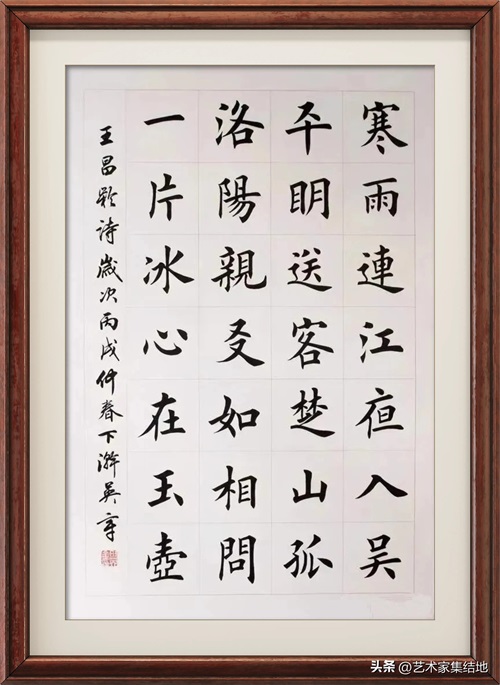 寒雨連江夜入吳
平明送客楚山孤
洛陽親友如相問
一片冰心在玉壺
王昌齡詩歲次丙戌仲春下澣吳
头条 @艺术家集结地